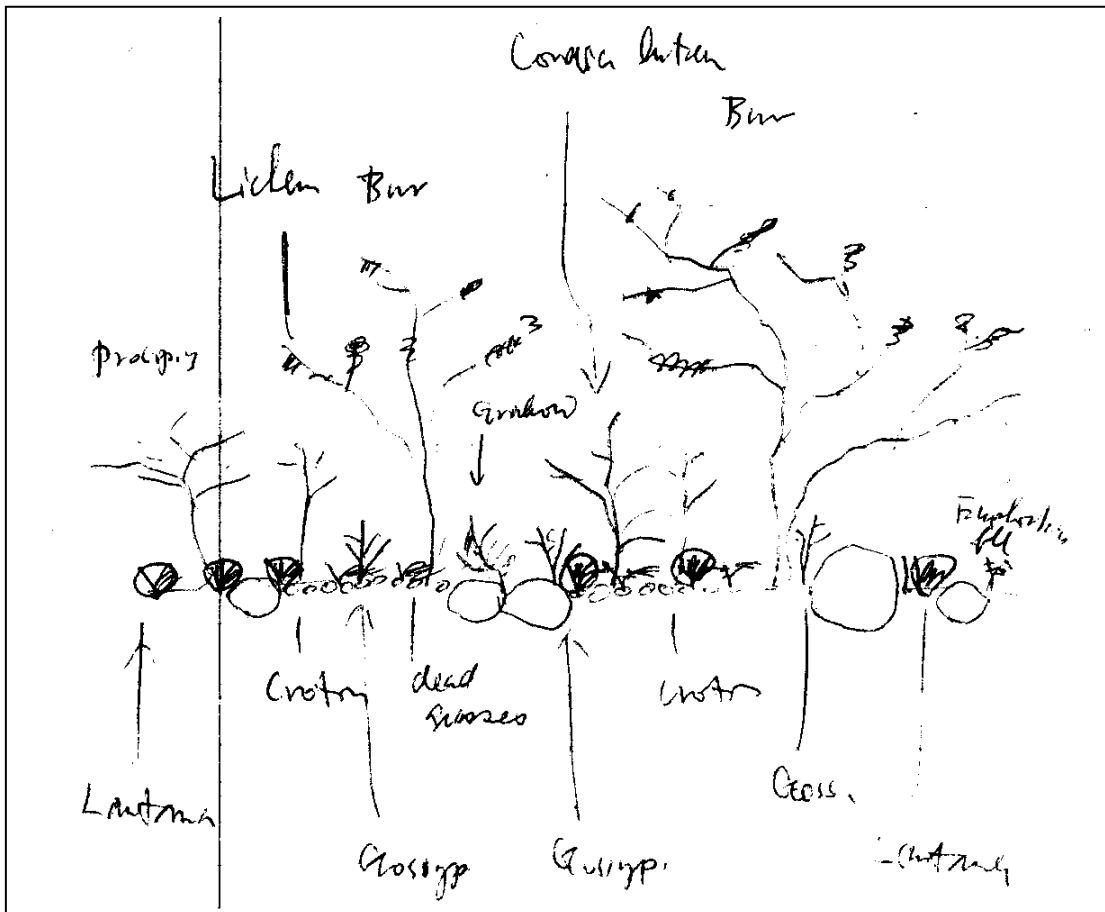 Cordia lutea
Bur
Lichen Bur
Prosopis
Croton
dead
grasses
Croton
Lantana
Gossyp
Gossyp.
Goss.
Lantana